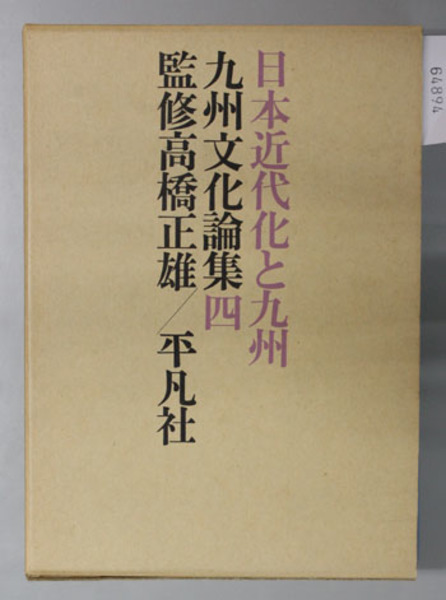 日本近代化と九州
九州文化論集四
監修高橋正雄／平凡社
64894